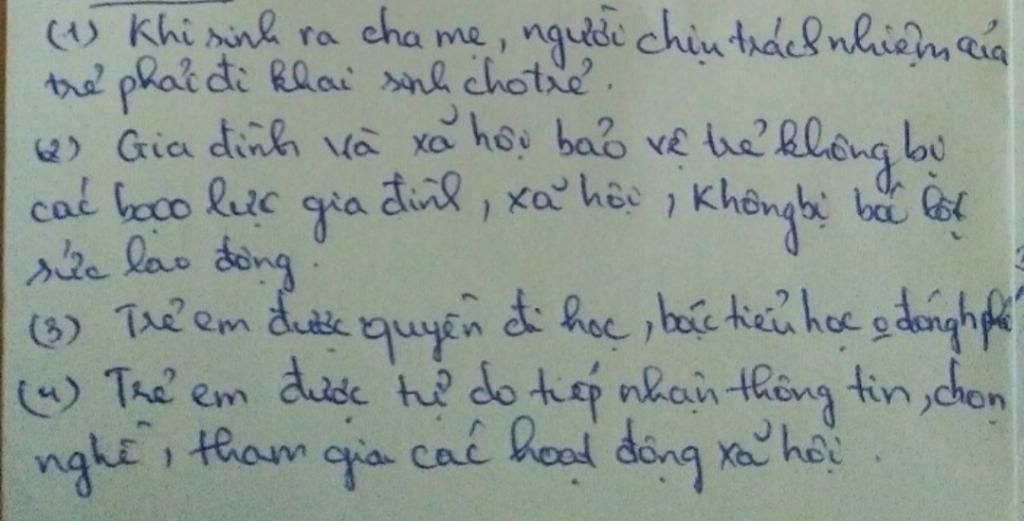 (1) Khi sinh ra cha mẹ, người chịu trách nhiệm của
trẻ phải đi khai sinh cho trẻ.
(2) Gia đình và xã hội bảo vệ trẻ không bị
các bạo lực gia đình, xã hội, không bị bóc lột
sức lao động.
(3) Trẻ em được quyền đi học, bậc tiểu học o đóng h phí
(4) Trẻ em được tự do tiếp nhận thông tin, chọn
nghề, tham gia các hoạt động xã hội.